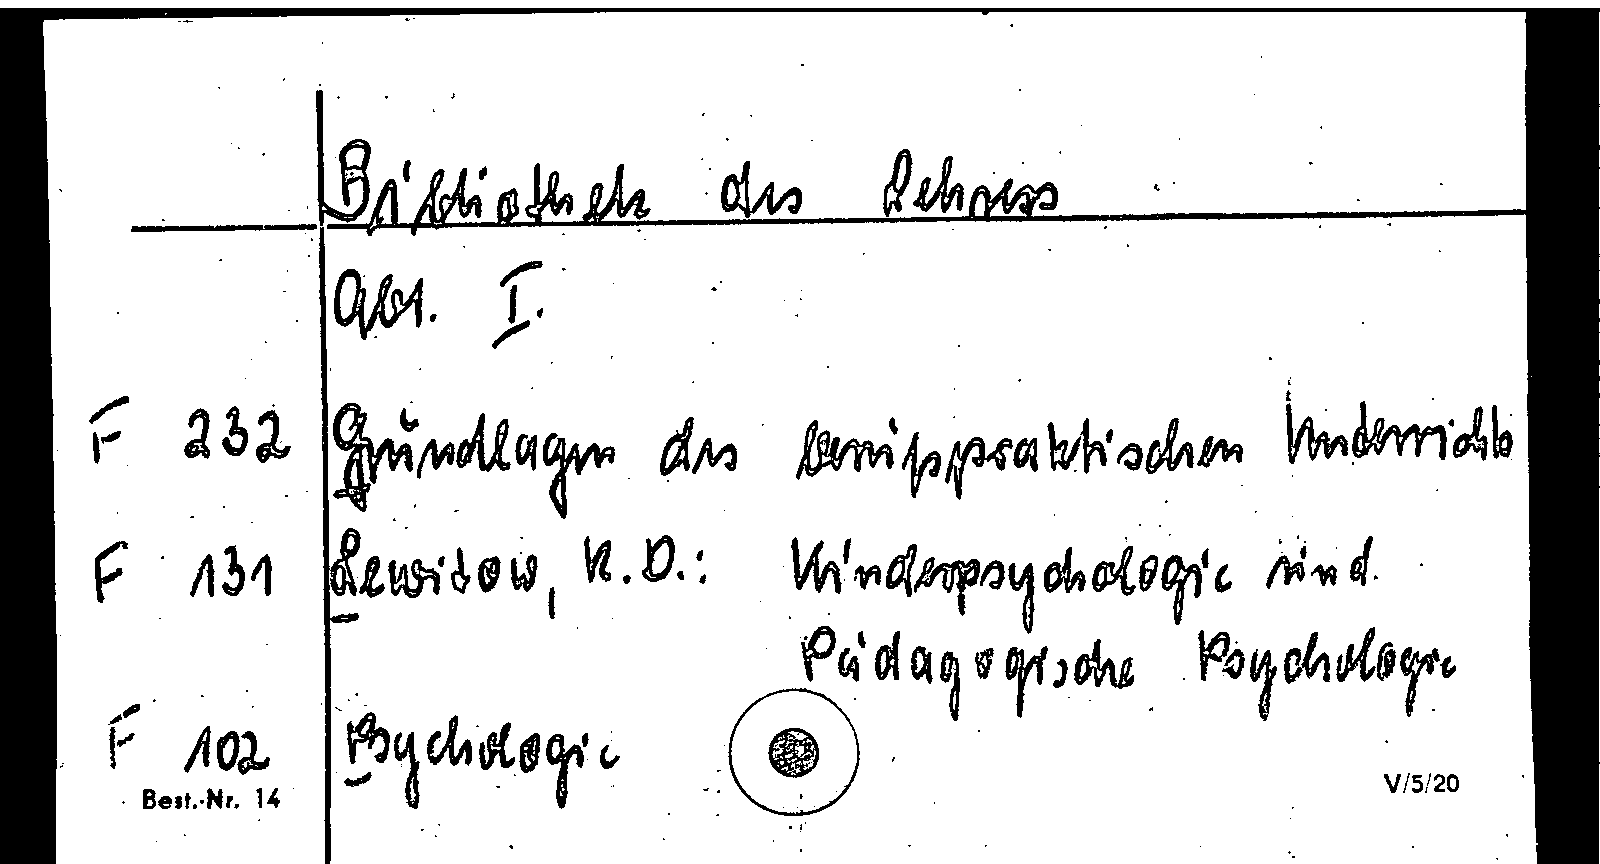 Bibliothek des Lehrers
Abt. I.
F 232 Grundlagen des berufspraktischen Unterrichts
F 131 Lewitow, N.D.: Kinderpsychologie und
Pädagogische Psychologie
F 102 Psychologie
Best.-Nr. 14 V/5/20